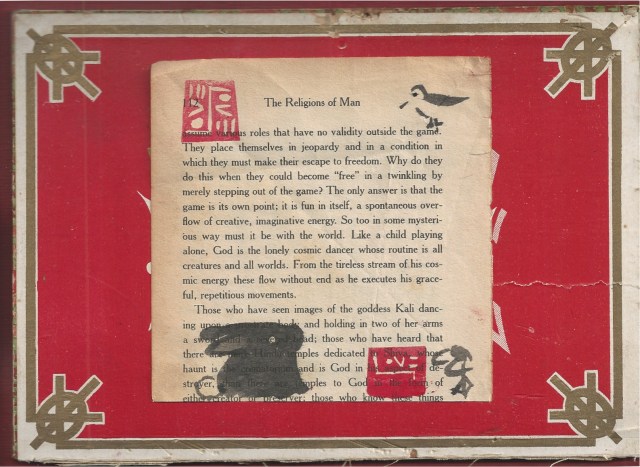 The Religions of Man
assume various roles that have no validity outside the game.
They place themselves in jeopardy and in a condition in
which they must make their escape to freedom. Why do they
do this when they could become “free” in a twinkling by
merely stepping out of the game? The only answer is that the
game is its own point; it is fun in itself, a spontaneous over-
flow of creative, imaginative energy. So too in some mysteri-
ous way must it be with the world. Like a child playing
alone, God is the lonely cosmic dancer whose routine is all
creatures and all worlds. From the tireless stream of his cos-
mic energy these flow without end as he executes his grace-
ful, repetitious movements.
Those who have seen images of the goddess Kali danc-
ing upon body and holding in two of her arms
a sword and a head; those who have heard that
there are Hindu temples dedicated to Shiva, whose
haunt is the and is God in his of de-
stroyer, temples to God in the form of
either creator or preserver; those who know these things